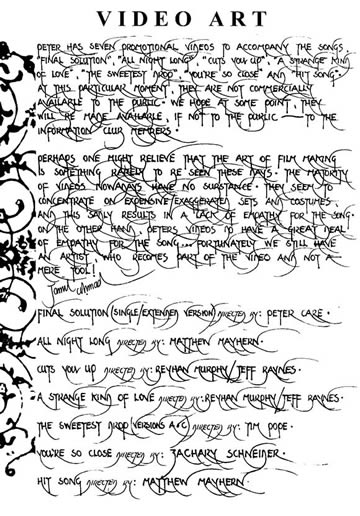 VIDEO ART
PETER HAS SEVEN PROMOTIONAL VIDEOS TO ACCOMPANY THE SONGS.
"FINAL SOLUTION", "ALL NIGHT LONG", "CUTS YOU UP", "A STRANGE KIND
OF LOVE", "THE SWEETEST DROP", "YOU'RE SO CLOSE" AND "HIT SONG".
AT THIS PARTICULAR MOMENT, THEY ARE NOT COMMERCIALLY
AVAILABLE TO THE PUBLIC. WE HOPE AT SOME POINT, THEY
WILL BE MADE AVAILABLE, IF NOT TO THE PUBLIC — TO THE
INFORMATION CLUB MEMBERS.
PERHAPS ONE MIGHT BELIEVE THAT THE ART OF FILM MAKING
IS SOMETHING RARELY TO BE SEEN THESE DAYS. THE MAJORITY
OF VIDEOS NOWADAYS HAVE NO SUBSTANCE. THEY SEEM TO
CONCENTRATE ON EXPENSIVE/EXAGGERATED SETS AND COSTUMES
AND THIS SADLY RESULTS IN A LACK OF EMPATHY FOR THE SONG.
ON THE OTHER HAND, PETERS VIDEOS DO HAVE A GREAT DEAL
OF EMPATHY FOR THE SONG... FORTUNATELY WE STILL HAVE
AN ARTIST WHO BECOMES PART OF THE VIDEO AND NOT A
MERE TOOL!
FINAL SOLUTION (SINGLE/EXTENDED VERSION) DIRECTED BY: PETER CARE.
ALL NIGHT LONG DIRECTED BY: MATTHEW MAYHERN.
CUTS YOU UP DIRECTED BY: REYHAN MURPHY/JEFF RAYNES.
A STRANGE KIND OF LOVE DIRECTED BY: REYHAN MURPHY/JEFF RAYNES.
THE SWEETEST DROP (VERSIONS A+C) DIRECTED BY: TIM POPE.
YOU'RE SO CLOSE DIRECTED BY: ZACHARY SCHNEIDER.
HIT SONG DIRECTED BY: MATTHEW MAYHERN.